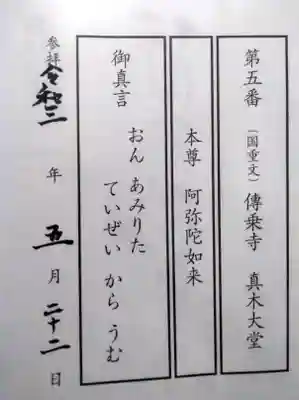 第五番 （国重文） 傳乗寺 真木大堂
本尊 阿弥陀如来
御真言 おん あみりた
ていぜい から うむ
参拝 令和三 年 五 月 二十二 日